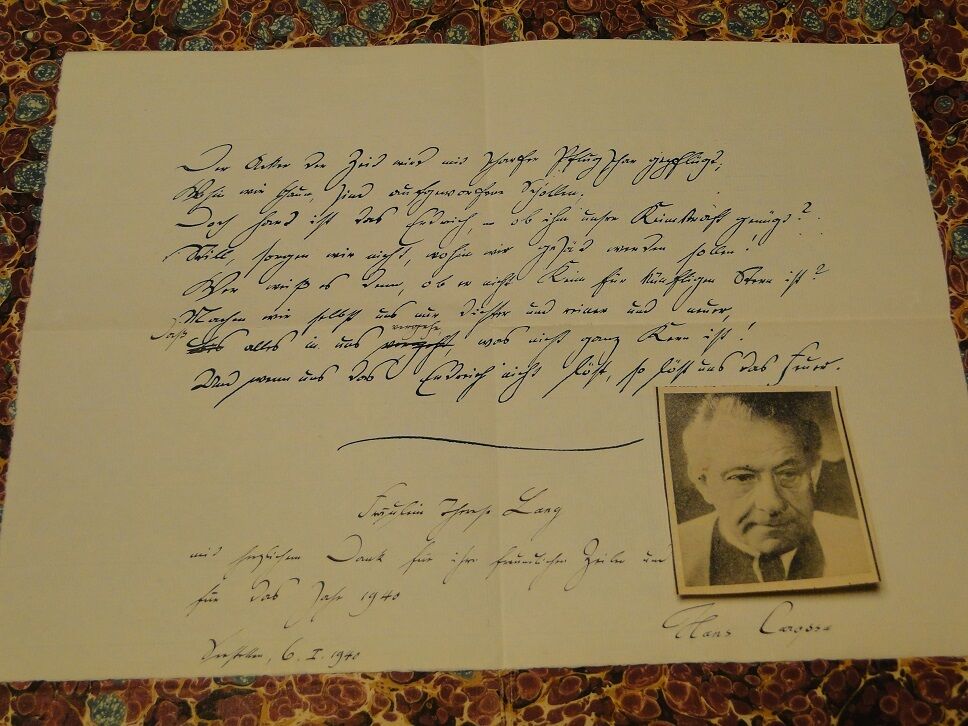 Der Acker der Zeit wird mit scharfer Pflugschar gepflügt;
Wohin wir schaun, sind aufgeworfene Schollen;
Doch hart ist das Erdreich, – ob ihm unsre Keimkraft genügt?
Still, sorgen wir nicht, wohin wir gesät werden sollen!
Wer weiß es denn, ob er nicht Keim für künftigen Stern ist?
Machen wir selbst uns nur dichter und reiner und neuer,
Daß alles in uns vergehe, was nicht ganz Kern ist!
Und wenn uns das Erdreich nicht löst, so löst uns das Feuer.
Fräulein Therese Lang
mit herzlichem Dank für ihre freundlichen Zeilen und
für das Jahr 1940
Seestetten, 6.I.1940
Hans Carossa